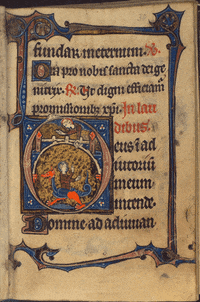 fundar in eternum. V.
Ora pro nobis sancta dei ge
nitrix. R. Ut digni efficiam
promissionibz xpi. In lau
dibus.
Deus i ad
iutoriu
meum
intende.
Domine ad adiuuan